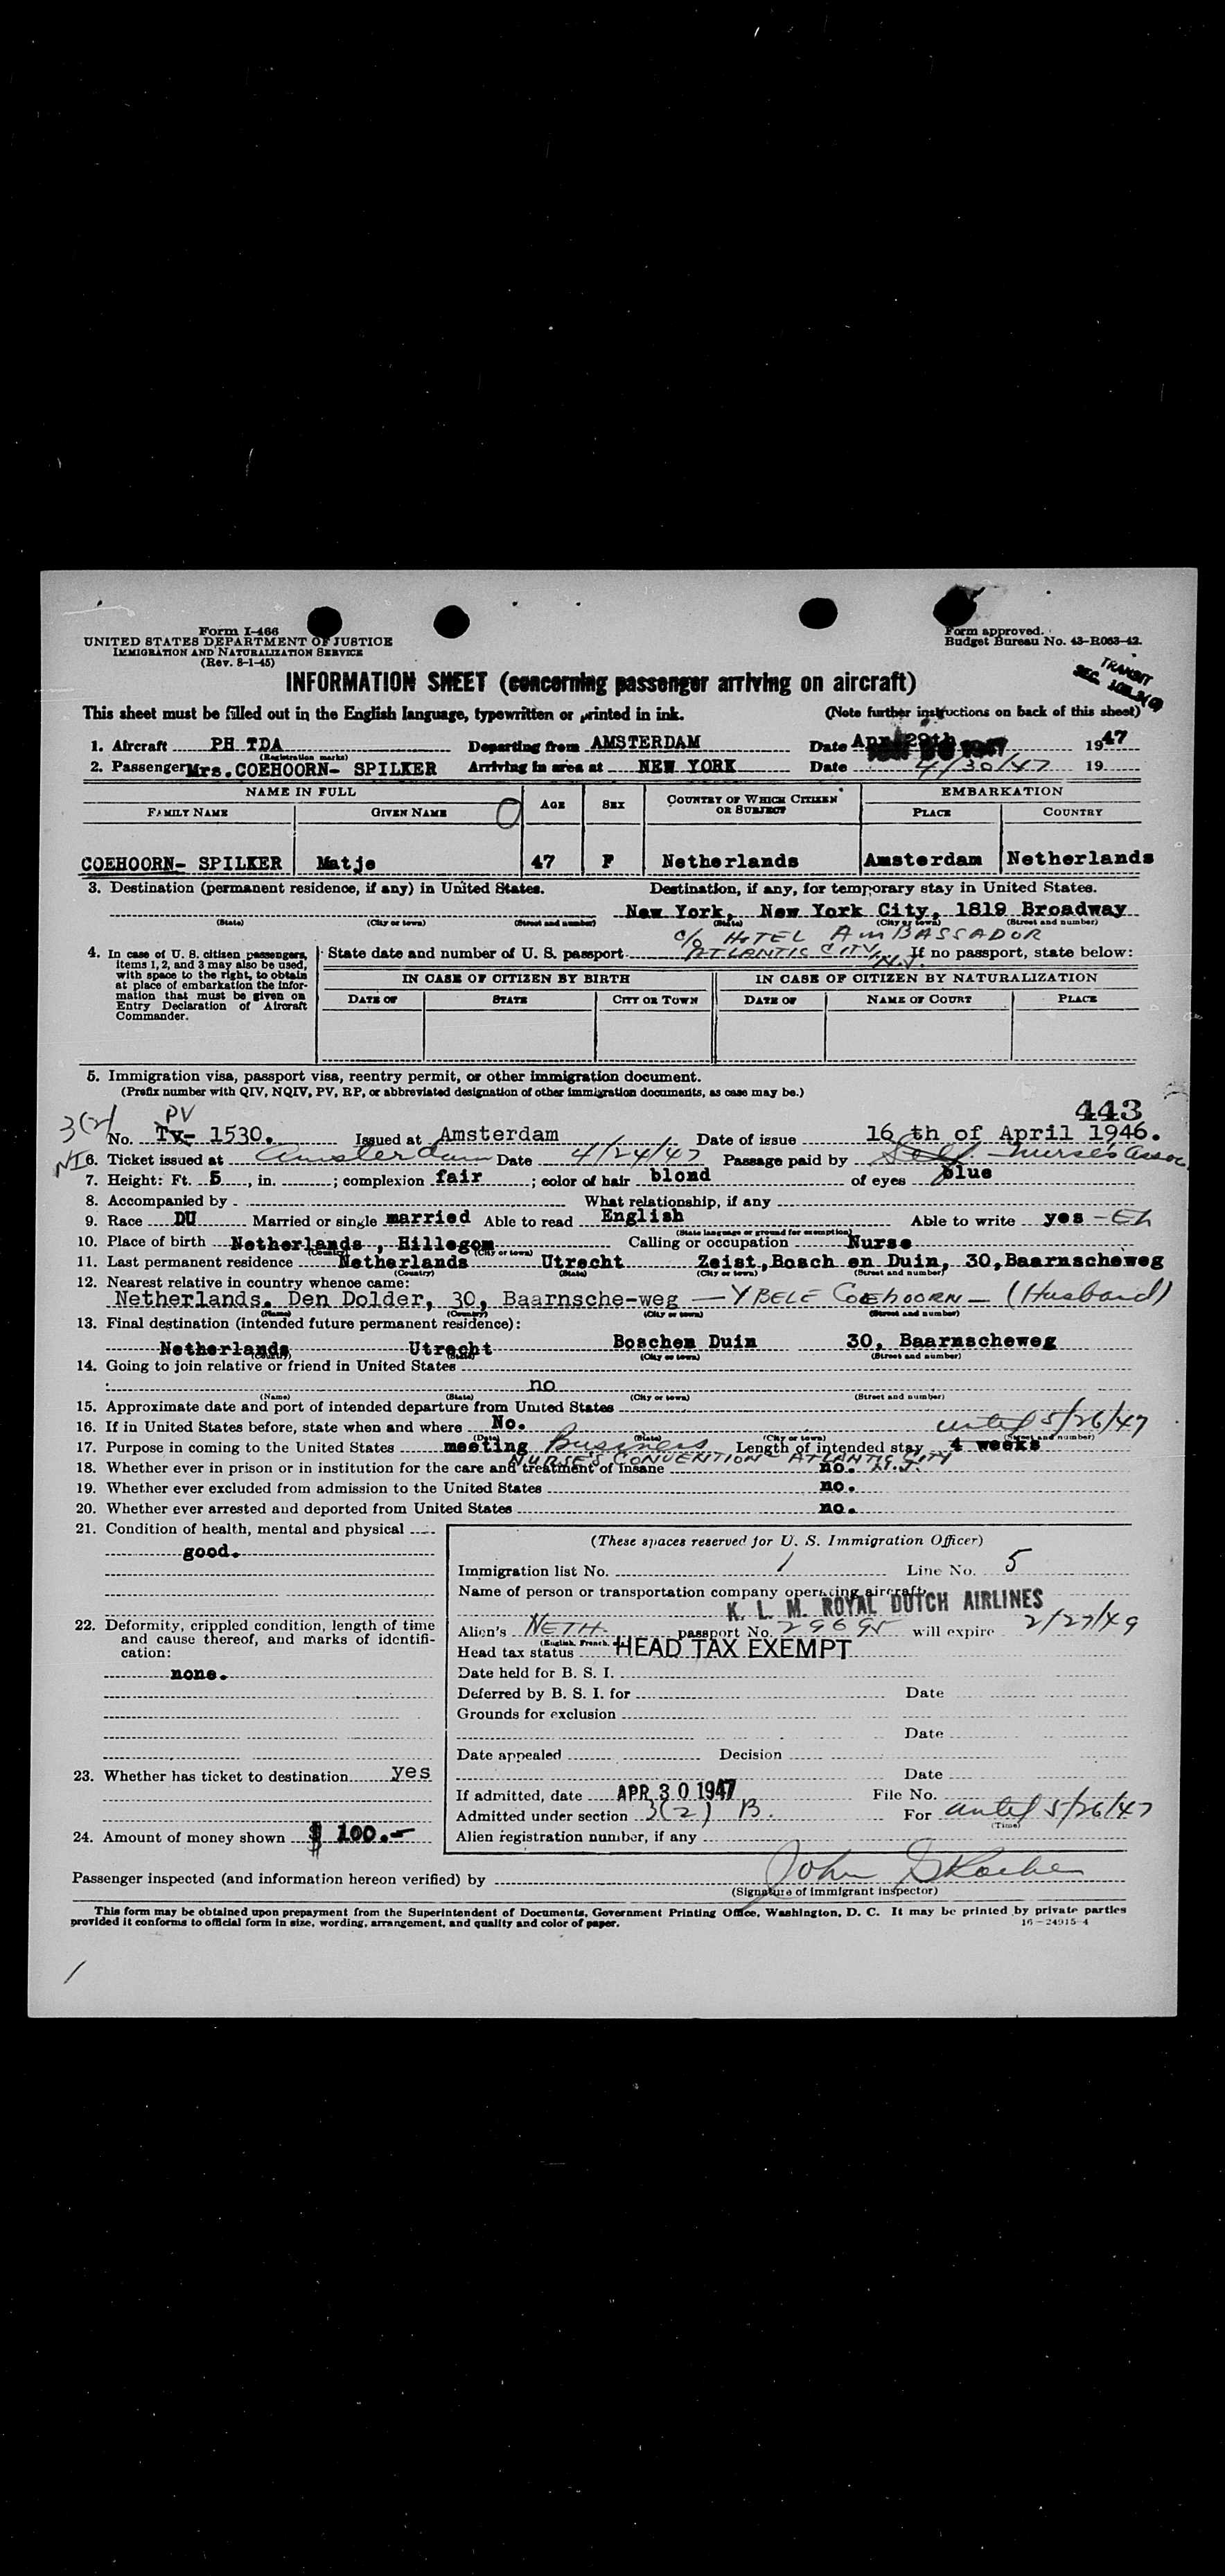 Form I-466
UNITED STATES DEPARTMENT OF JUSTICE
IMMIGRATION AND NATURALIZATION SERVICE
(Rev. 8-1-45)
Form approved.
Budget Bureau No. 43-R063-42.
TRANSIT
INFORMATION SHEET (concerning passenger arriving on aircraft)
This sheet must be filled out in the English language, typewritten or printed in ink.
(Note further instructions on back of this sheet)
1. Aircraft PH TDA Departing from AMSTERDAM Date 1947
(Registration marks)
2. Passenger Mrs. COEHOORN- SPILKER Arriving in area at NEW YORK Date 4/30/47 19
NAME IN FULL AGE SEX COUNTRY OF WHICH CITIZEN OR SUBJECT EMBARKATION
FAMILY NAME GIVEN NAME PLACE COUNTRY
COEHOORN- SPILKER Matje 47 F Netherlands Amsterdam Netherlands
3. Destination (permanent residence, if any) in United States. Destination, if any, for temporary stay in United States.
New York, New York City, 1819 Broadway
(State) (City or town) (Street and number) (State) (City or town) (Street and number)
c/o HOTEL AMBASSADOR
ATLANTIC CITY, N.J.
4. In case of U. S. citizen passengers, items 1, 2, and 3 may also be used, with space to the right, to obtain at place of embarkation the information that must be given on Entry Declaration of Aircraft Commander.
State date and number of U. S. passport If no passport, state below:
IN CASE OF CITIZEN BY BIRTH IN CASE OF CITIZEN BY NATURALIZATION
DATE OF STATE CITY OR TOWN DATE OF NAME OF COURT PLACE
5. Immigration visa, passport visa, reentry permit, or other immigration document.
(Prefix number with QIV, NQIV, PV, RP, or abbreviated designation of other immigration documents, as case may be.)
443
3(2) PV
No. Tv- 1530. Issued at Amsterdam Date of issue 16 th of April 1946.
NI 6. Ticket issued at Amsterdam Date 4/24/47 Passage paid by Self - Nurses Assoc
7. Height: Ft. 5, in. ; complexion fair ; color of hair blond of eyes blue
8. Accompanied by - What relationship, if any
9. Race DU Married or single married Able to read English Able to write yes
(State language or ground for exemption)
10. Place of birth Netherlands, Hillegom Calling or occupation Nurse
(Country) (City or town)
11. Last permanent residence Netherlands Utrecht Zeist, Bosch en Duin, 30, Baarnscheweg
(Country) (State) (City or town) (Street and number)
12. Nearest relative in country whence came:
Netherlands. Den Dolder, 30, Baarnsche-weg — YBELE COEHOORN — (Husband)
(Name) (Country) (City or town) (Street and number)
13. Final destination (intended future permanent residence):
Netherlands Utrecht Boschen Duin 30, Baarnscheweg
(Country) (State) (City or town) (Street and number)
14. Going to join relative or friend in United States
no
(Name) (State) (City or town) (Street and number)
15. Approximate date and port of intended departure from United States
16. If in United States before, state when and where No. until 5/26/47
(Date) (State) (City or town) (Street and number)
17. Purpose in coming to the United States meeting Business Length of intended stay 4 weeks
NURSES CONVENTION - ATLANTIC CITY N.J.
18. Whether ever in prison or in institution for the care and treatment of insane no.
19. Whether ever excluded from admission to the United States no.
20. Whether ever arrested and deported from United States no.
21. Condition of health, mental and physical
good.
22. Deformity, crippled condition, length of time and cause thereof, and marks of identification:
none.
23. Whether has ticket to destination yes
24. Amount of money shown $ 100.-
(These spaces reserved for U. S. Immigration Officer)
Immigration list No. 1 Line No. 5
Name of person or transportation company operating aircraft
K. L. M. ROYAL DUTCH AIRLINES
Alien's NETH. passport No. 29695 will expire 2/27/49
(English, French,
Head tax status HEAD TAX EXEMPT
Date held for B. S. I.
Deferred by B. S. I. for Date
Grounds for exclusion
Date
Date appealed Decision
Date
If admitted, date APR 30 1947 File No.
Admitted under section 3(2) B. For until 5/26/47
(Time)
Alien registration number, if any
Passenger inspected (and information hereon verified) by John
(Signature of immigrant inspector)
This form may be obtained upon prepayment from the Superintendent of Documents, Government Printing Office, Washington, D. C. It may be printed by private parties
provided it conforms to official form in size, wording, arrangement, and quality and color of paper.
16-24915-4